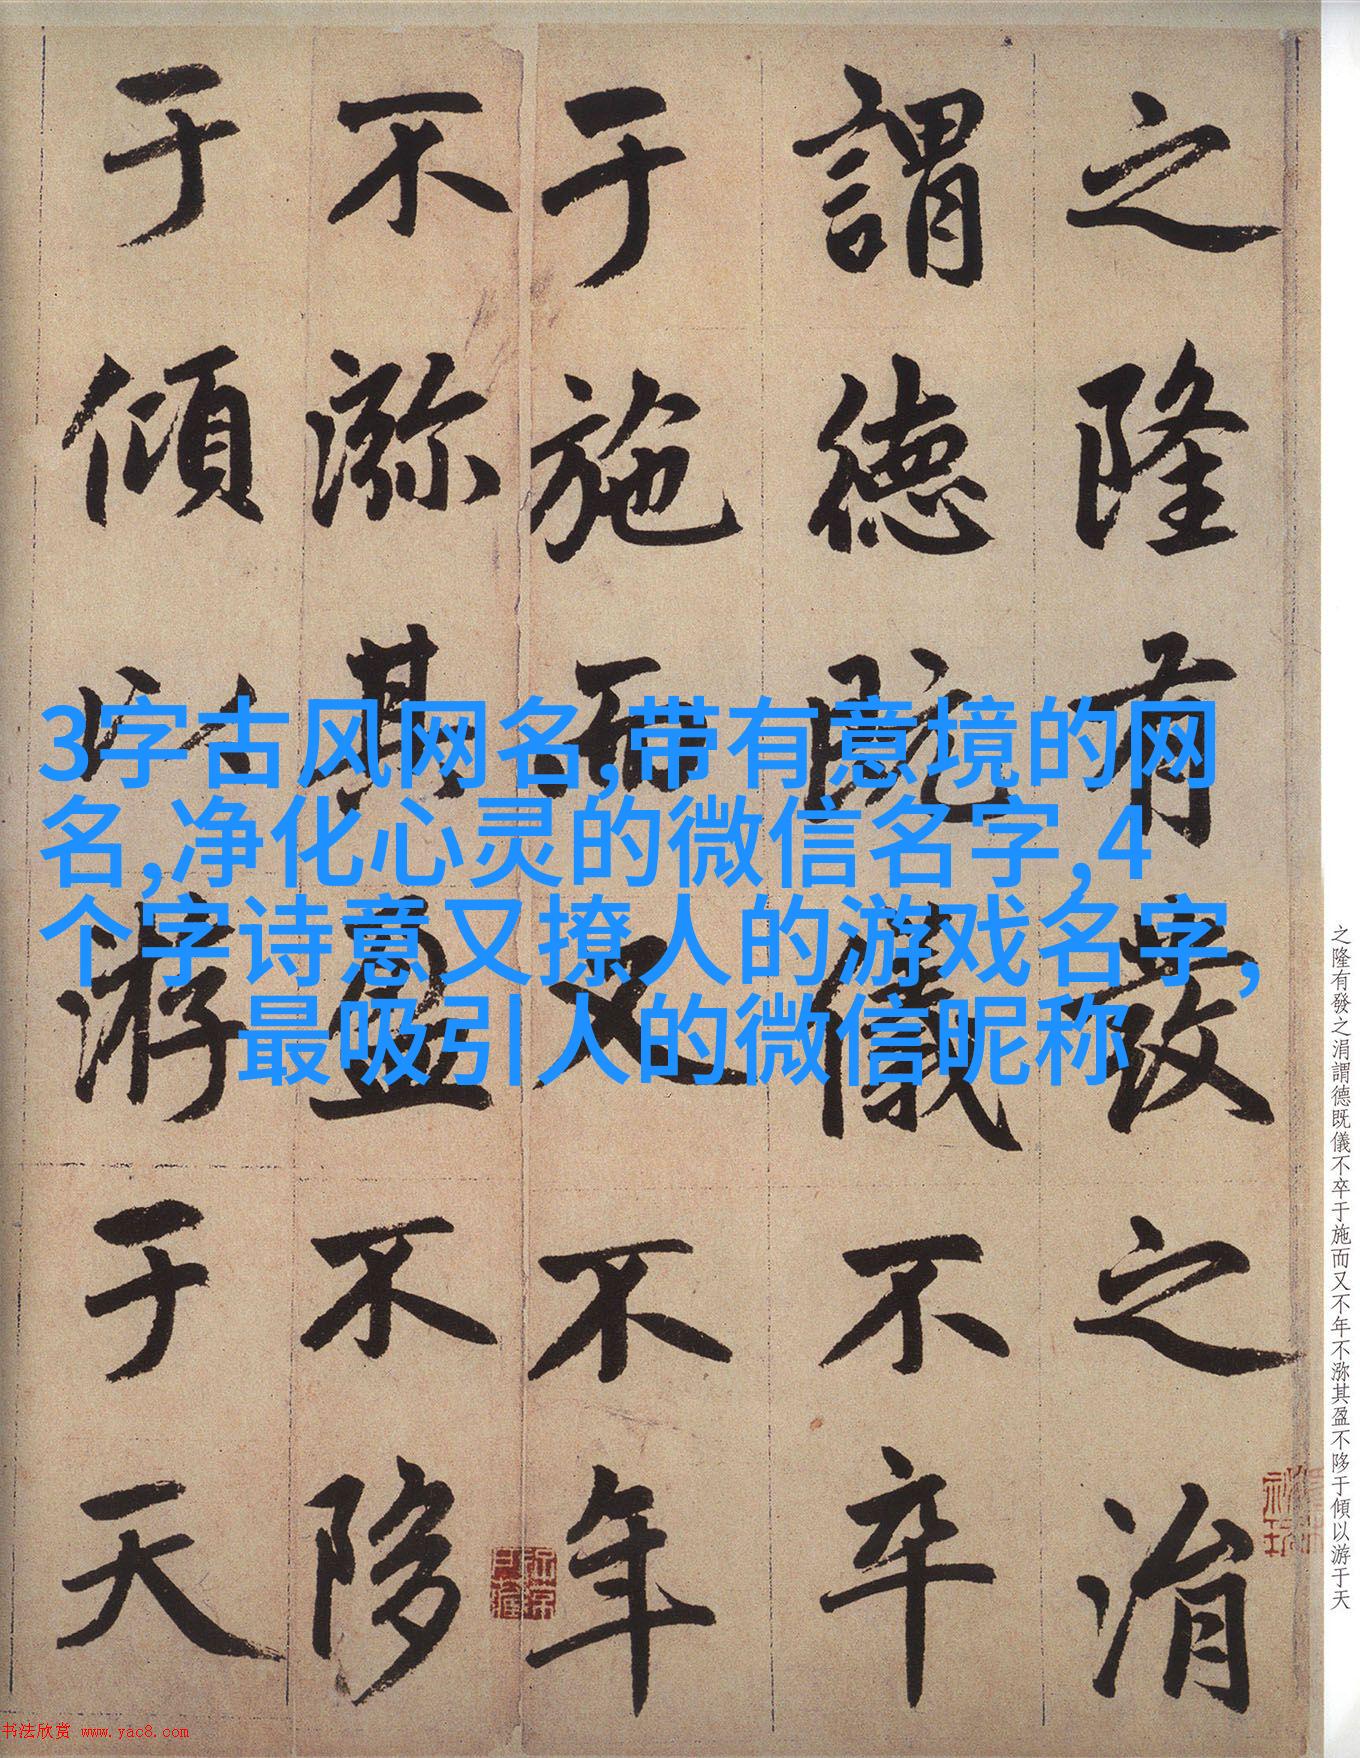 3字古风网名,带有意境的网
名,净化心灵的微信名字,4
个字诗意又撩人的游戏名字,
最吸引人的微信昵称
之隆有發之涓
謂德既儀不卒
于施而又不年
不㳽其盈不陊
于傾以游于天
之隆有發之涓謂德既儀不卒于施而又不年不㳽其盈不陊于傾以游于天
书法欣赏 www.yac8.com